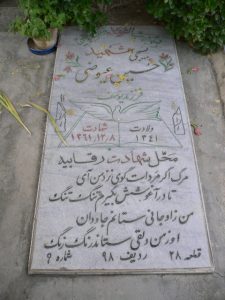 بسیجی شهید
حسین عیوضی
فرزند
ولادت شهادت
۱۳۴۱ ۱۳۶۱٫۱۲٫۸
محل شهادت رقابیه
مرگ اگر مرد است گوی نزد من آی
تا در آغوشش بگیرم تنگ تنگ
من ز او جانی ستانم جاودان
او ز من دلقی ستاند رنگ رنگ
قطعه ۲۸ ردیف ۹۸ شماره